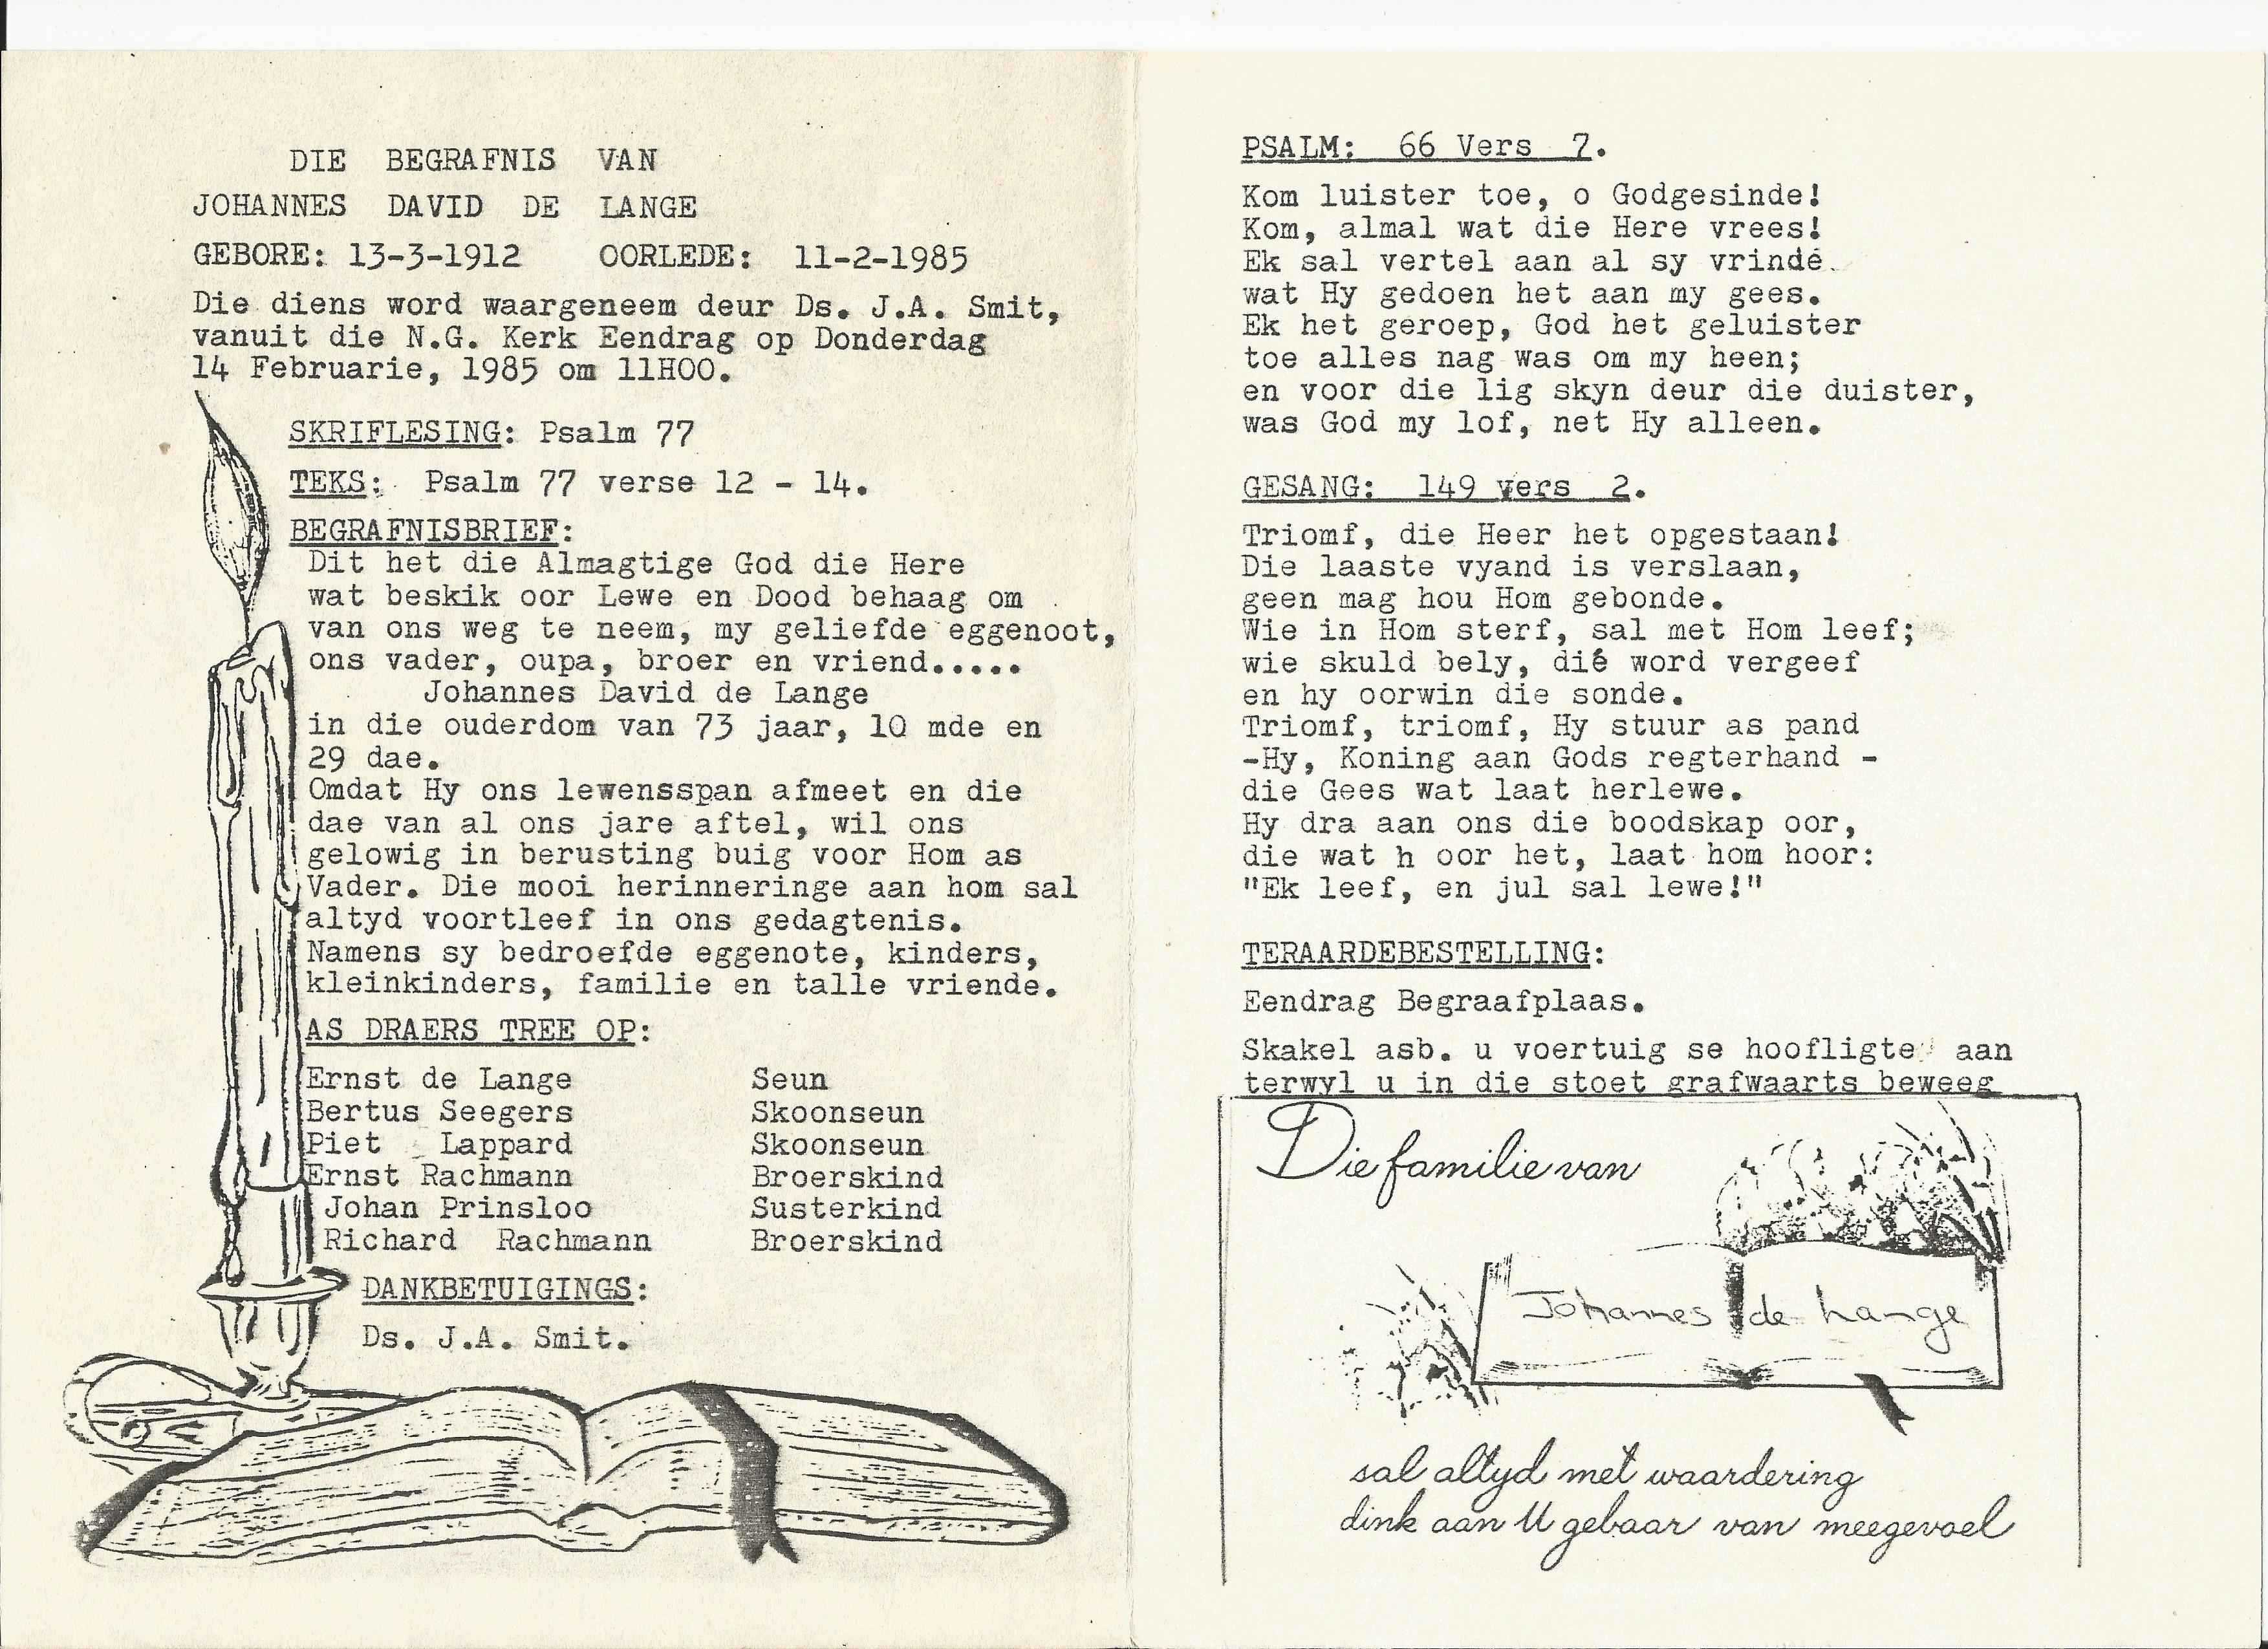 DIE BEGRAFNIS VAN
JOHANNES DAVID DE LANGE
GEBORE: 13-3-1912 OORLEDE: 11-2-1985
Die diens word waargeneem deur Ds. J.A. Smit,
vanuit die N.G. Kerk Eendrag op Donderdag
14 Februarie, 1985 om 11H00.
SKRIFLESING: Psalm 77
TEKS: Psalm 77 verse 12 - 14.
BEGRAFNISBRIEF:
Dit het die Almagtige God die Here
wat beskik oor Lewe en Dood behaag om
van ons weg te neem, my geliefde eggenoot,
ons vader, oupa, broer en vriend.....
Johannes David de Lange
in die ouderdom van 73 jaar, 10 mde en
29 dae.
Omdat Hy ons lewensspan afmeet en die
dae van al ons jare aftel, wil ons
gelowig in berusting buig voor Hom as
Vader. Die mooi herinneringe aan hom sal
altyd voortleef in ons gedagtenis.
Namens sy bedroefde eggenote, kinders,
kleinkinders, familie en talle vriende.
AS DRAERS TREE OP:
Ernst de Lange Seun
Bertus Seegers Skoonseun
Piet Lappard Skoonseun
Ernst Rachmann Broerskind
Johan Prinsloo Susterkind
Richard Rachmann Broerskind
DANKBETUIGINGS:
Ds. J.A. Smit.
PSALM: 66 Vers 7.
Kom luister toe, o Godgesinde!
Kom, almal wat die Here vrees!
Ek sal vertel aan al sy vrinde
wat Hy gedoen het aan my gees.
Ek het geroep, God het geluister
toe alles nag was om my heen;
en voor die lig skyn deur die duister,
was God my lof, net Hy alleen.
GESANG: 149 vers 2.
Triomf, die Heer het opgestaan!
Die laaste vyand is verslaan,
geen mag hou Hom gebonde.
Wie in Hom sterf, sal met Hom leef;
wie skuld bely, dié word vergeef
en hy oorwin die sonde.
Triomf, triomf, Hy stuur as pand
-Hy, Koning aan Gods regterhand -
die Gees wat laat herlewe.
Hy dra aan ons die boodskap oor,
die wat h oor het, laat hom hoor:
"Ek leef, en jul sal lewe!"
TERAARDEBESTELLING:
Eendrag Begraafplaas.
Skakel asb. u voertuig se hoofligte aan
terwyl u in die stoet grafwaarts beweeg
Die familie van
Johannes de Lange
sal altyd met waardering
dink aan U gebaar van meegevoel